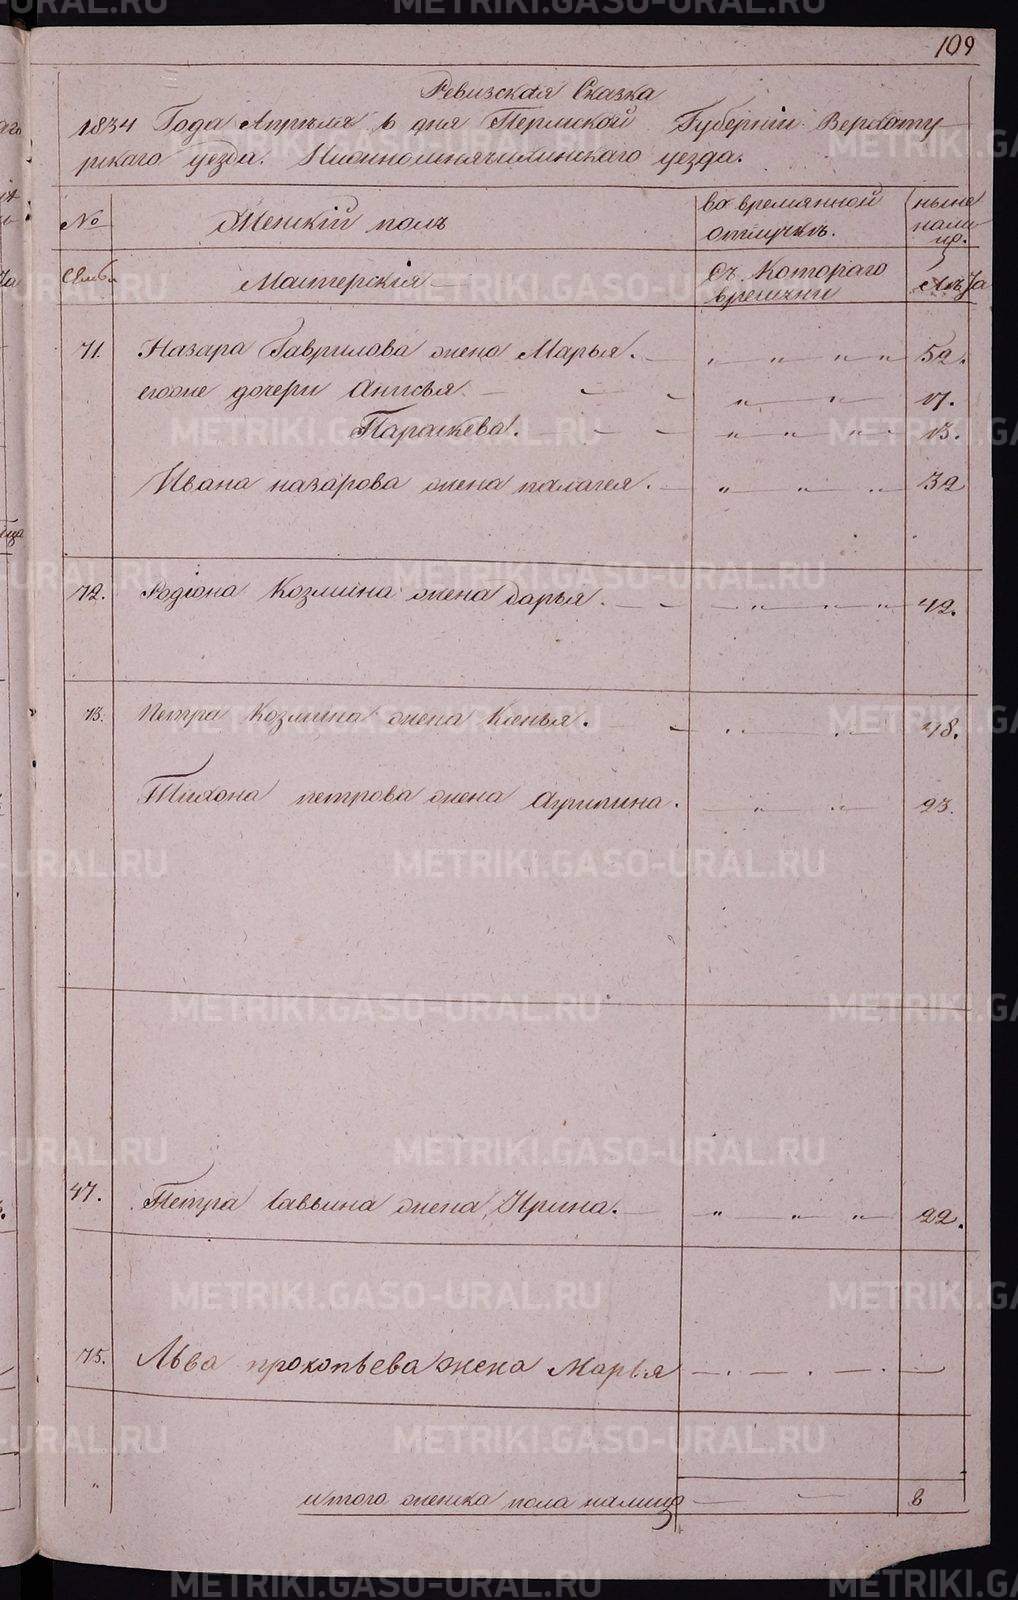 109
Ревизская Сказка
1834 Года Апреля 6 дня Пермской Губернии Верхоту
рскаго уезда.
уезда.
№
Женский полъ
во времянной
отлучкъ.
ныне
нали
цо.
Семь.
Мастерския
Съ Котораго
времени
Лѣта
71.
Назара Гаврилова жена Марья. — „ — „ — „ „ 52.
егоже дочери Анисья — „ — „ 17.
Параскева. — „ — „ — „ 13.
Ивана назарова жена палагея. — „ — „ — „ 32
72.
Родіона Козмина жена дарья. — „ — „ — „ 42.
73.
Петра Козмина жена 48.
Тихона петрова жена Агрипина. — „ — „ 23.
47.
Петра Саввина жена Ирина. — „ — „ — „ 22.
75.
Льва прокопьева жена Марья — . — . — . —
„
итого женска пола налицо — — 8
METRIKI.GASO-URAL.RU